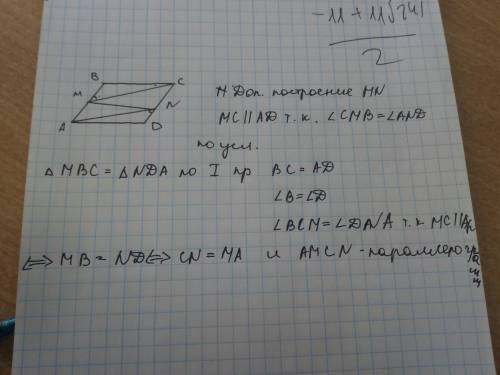 -11 + 11√241
2
B C
M N
A D
Доп. построение MN
MC||AD т.к. ∠CMB=∠AND
по усл.
△MBC = △NDA по I пр BC = AD
∠B=∠D
∠BCM=∠DNA т.к MC||AN
⟺ MB = ND ⟺ CN = MA и AMCN -